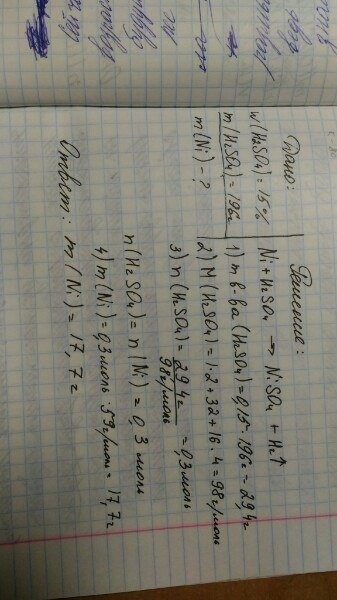 Дано:
w(H₂SO₄) = 15%
m(H₂SO₄) = 196г
m(Ni) - ?
Решение:
Ni + H₂SO₄ → NiSO₄ + H₂↑
1) m в-ва (H₂SO₄) = 0,15 · 196г = 29,4г
2) M(H₂SO₄) = 1·2 + 32 + 16·4 = 98г/моль
3) n(H₂SO₄) = 29,4г / 98г/моль = 0,3моль
n(H₂SO₄) = n(Ni) = 0,3моль
4) m(Ni) = 0,3моль · 59г/моль = 17,7г
Ответ: m(Ni) = 17,7г